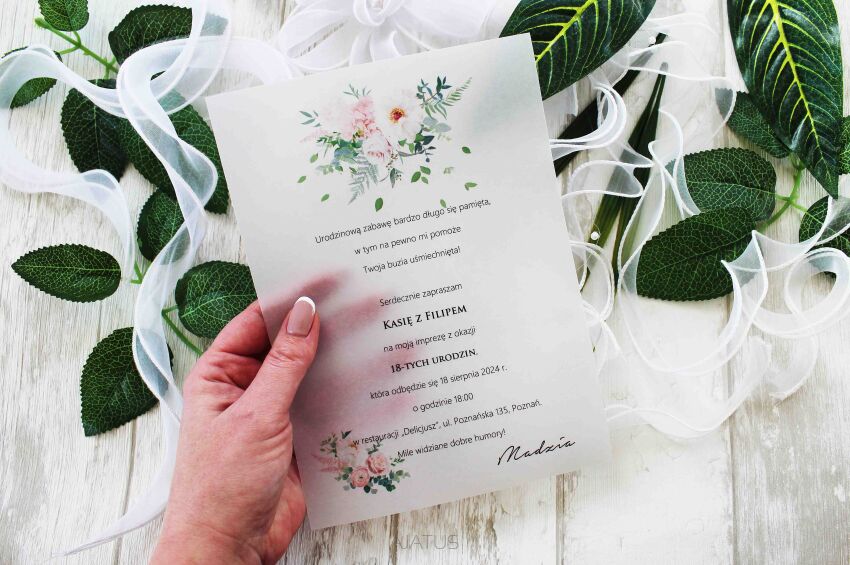 Urodzinową zabawę bardzo długo się pamięta,
w tym na pewno mi pomoże
Twoja buzia uśmiechnięta!
Serdecznie zapraszam
Kasię z Filipem
na moją imprezę z okazji
18-tych urodzin,
która odbędzie się 18 sierpnia 2024 r.
o godzinie 18:00
w restauracji „Delicjusz”, ul. Poznańska 135, Poznań.
Mile widziane dobre humory!
Madzia